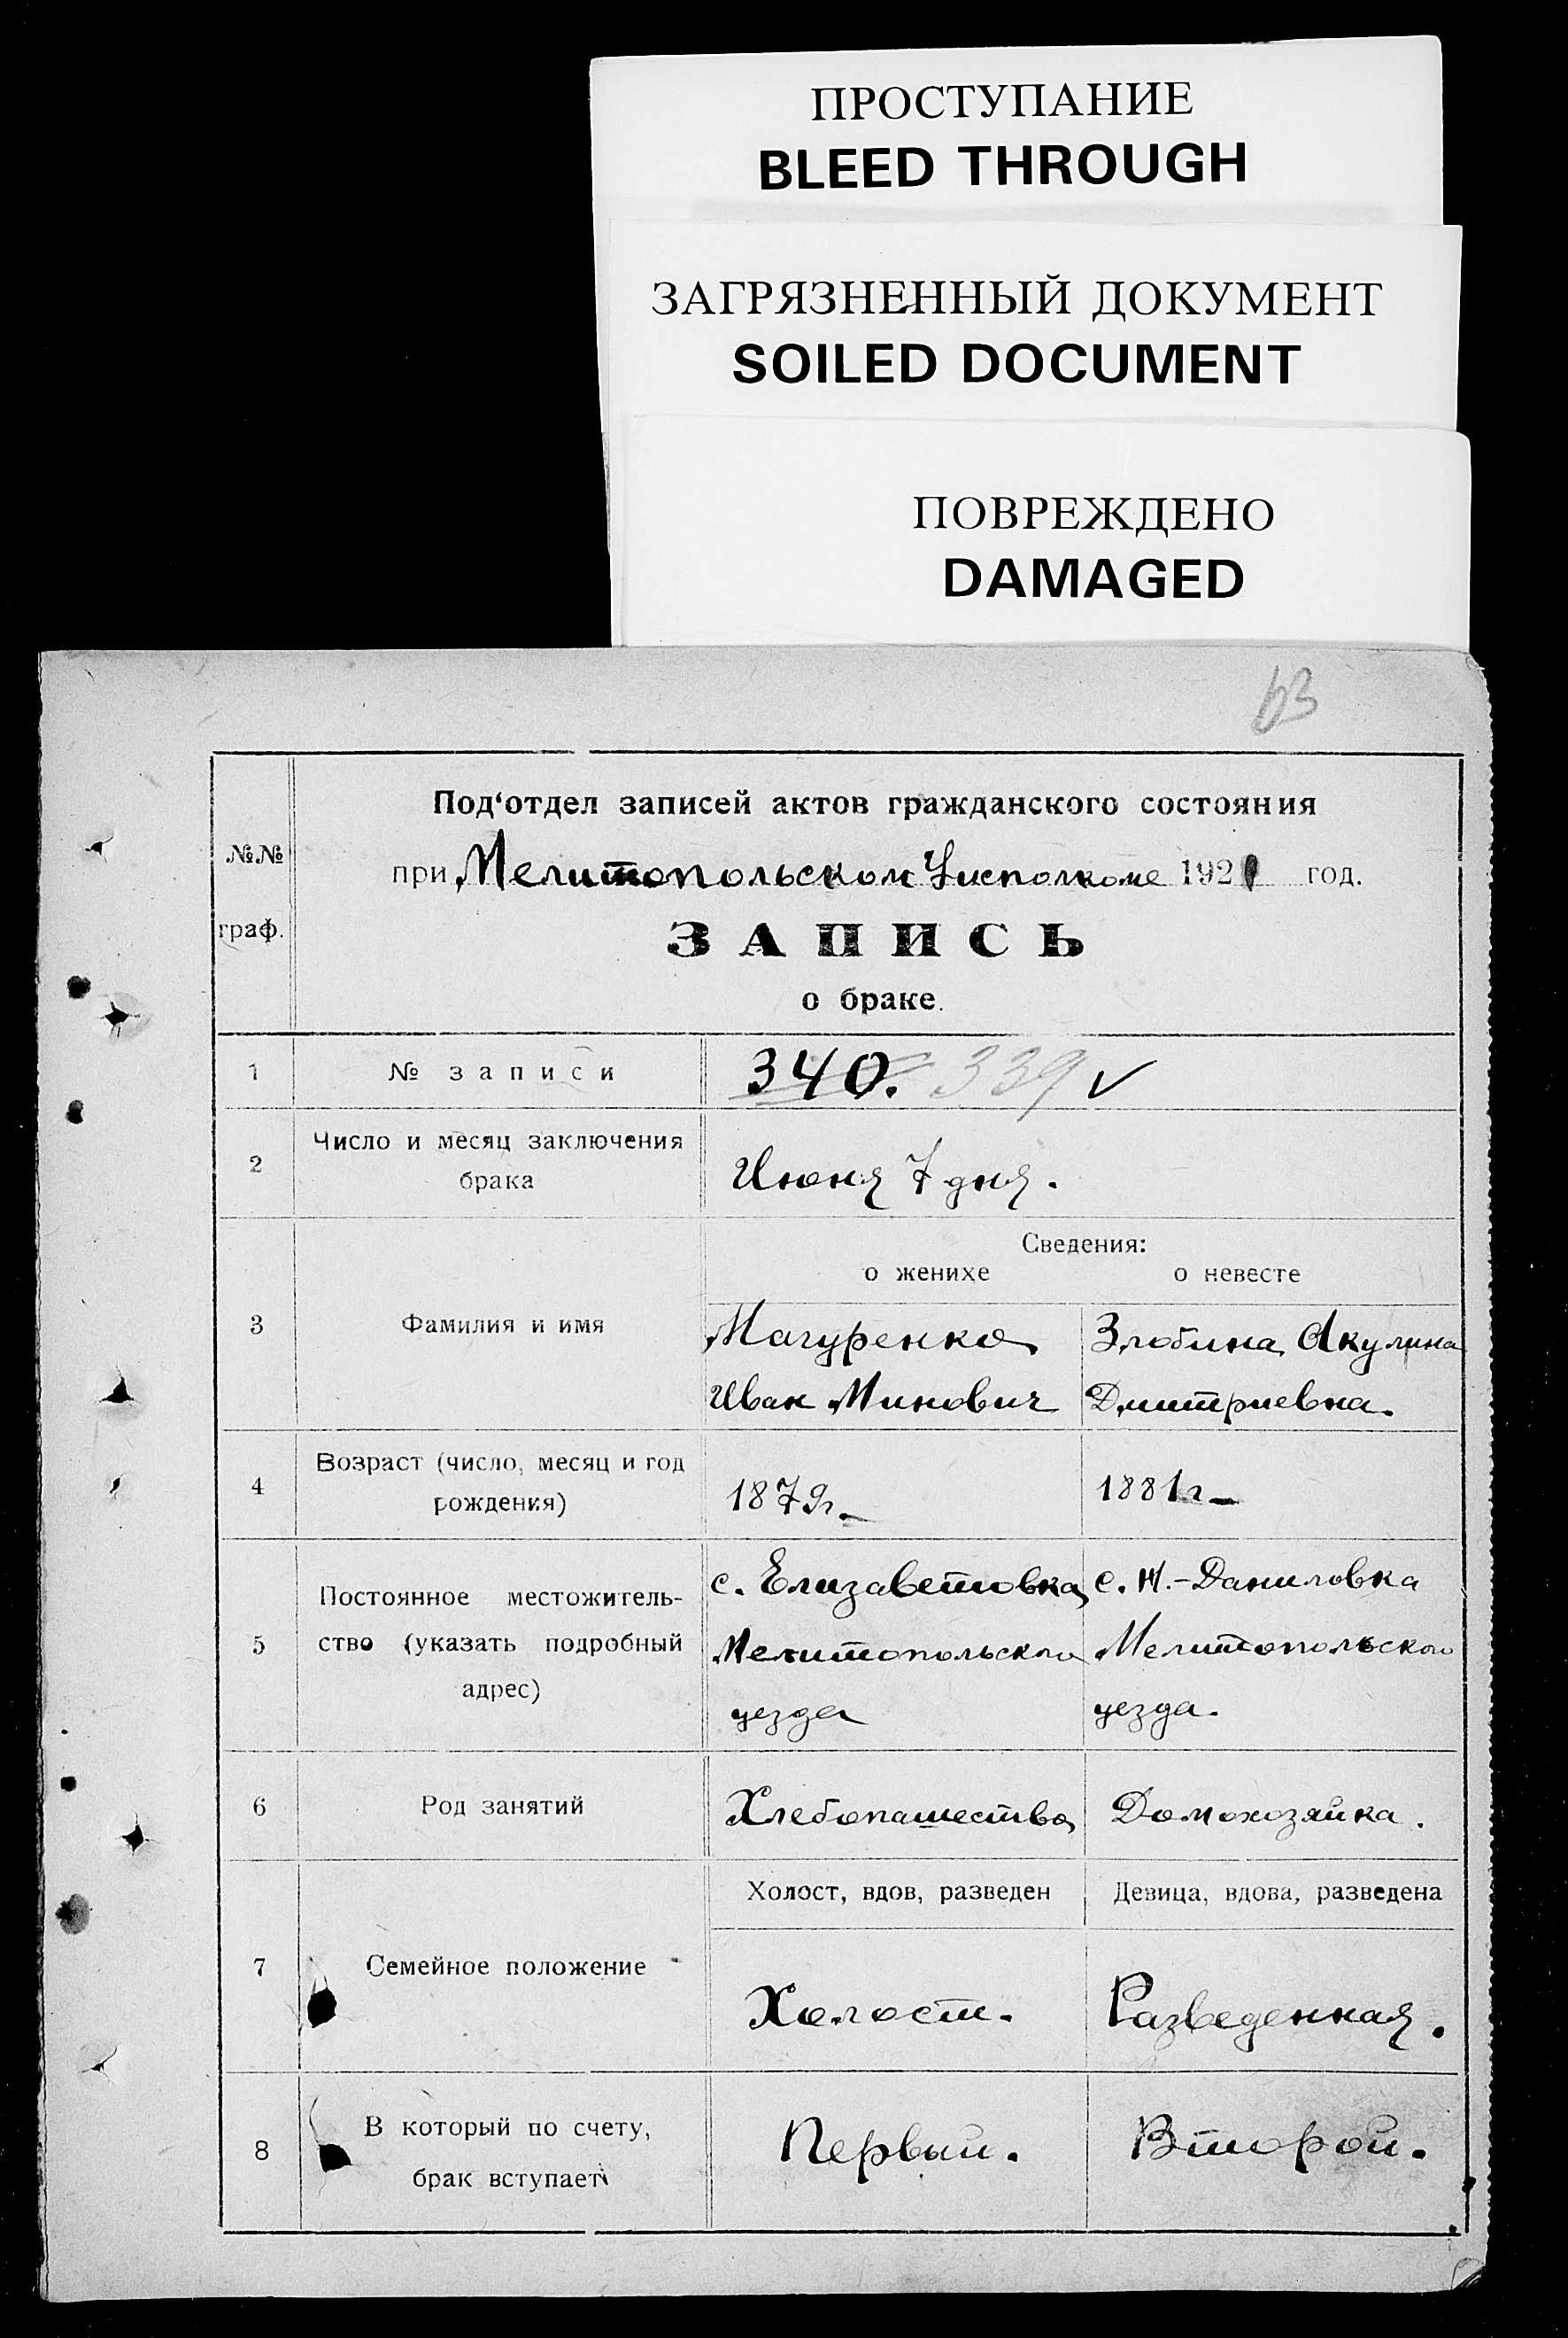 ПРОСТУПАНИЕ
BLEED THROUGH
ЗАГРЯЗНЕННЫЙ ДОКУМЕНТ
SOILED DOCUMENT
ПОВРЕЖДЕНО
DAMAGED
63
№№
граф.
Под‘отдел записей актов гражданского состояния
при Мелитопольском Уисполкоме 1921 год.
ЗАПИСЬ
о браке.
1 № записи 340. 339 ✓
2 Число и месяц заключения
брака
Июня 7 дня.
Сведения:
о женихе о невесте
3 Фамилия и имя
Мачуренко Злобина Акулина
Иван Минович Дмитриевна.
4 Возраст (число, месяц и год
рождения)
1879г. 1881г
5 Постоянное местожитель-
ство (указать подробный
адрес)
с. Елизаветовка с. Н.-Даниловка
Мелитопольского Мелитопольского
уезда уезда.
6 Род занятий Хлебопашество Домохозяйка.
Холост, вдов, разведен Девица, вдова, разведена
7 Семейное положение
Холост. Разведенная.
8 В который по счету,
брак вступает
Первый. Второй.